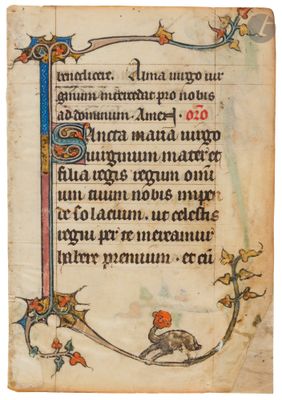 benedicere. Alma virgo vir
ginum intercedat pro nobis
ad dominum. Amen. oro
Sancta maria virgo
virginum mater et
filia regis regum omni
um tuum nobis impen
de solacium. ut celestis
regni per te mereamur
habere premium. et cu